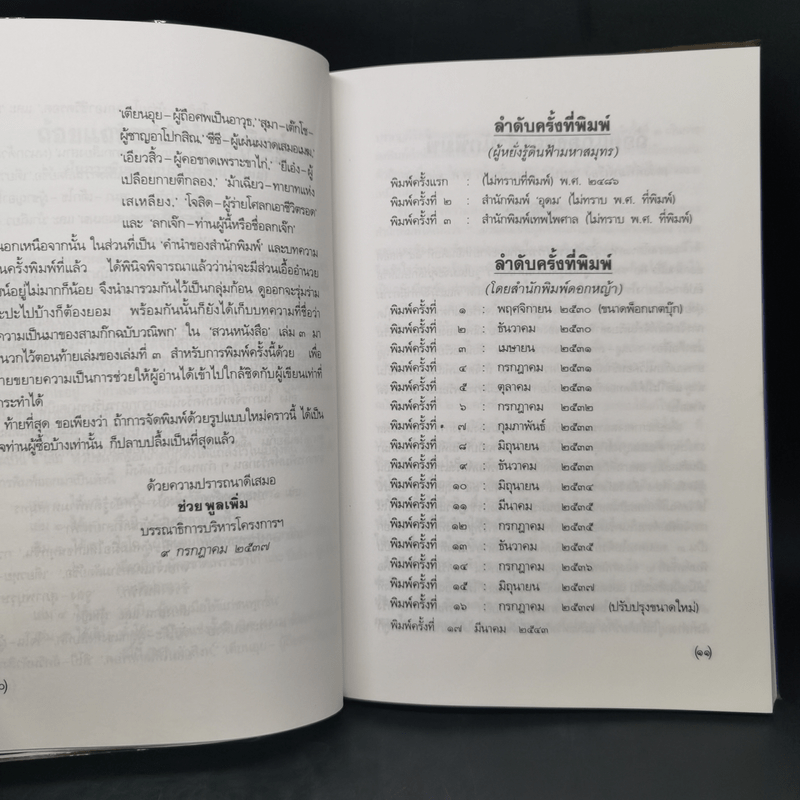 'เตียนอุย–ผู้ถือศพเป็นอาวุธ,' 'สุมา–เต๊กโช–
ผู้ชาญอาโปกสิณ,' 'ชีซี–ผู้เผ่นผงาดเสมอเมฆ,'
'เอียวสิ้ว–ผู้คอขาดเพราะขาไก่,' 'ยีเอ๋ง–ผู้
เปลือยกายตีกลอง,' 'ม้าเฉียว–ทายาทแห่ง
เสเหลียง,' 'โจสิด–ผู้ร่ายโศลกเอาชีวิตรอด'
และ 'ลกเจ๊ก–ท่านผู้นี้หรือชื่อลกเจ๊ก'
นอกเหนือจากนั้น ในส่วนที่เป็น 'คำนำของสำนักพิมพ์' และบทความ
ในครั้งพิมพ์ที่แล้ว ได้พินิจพิจารณาแล้วว่าน่าจะมีส่วนเอื้ออำนวย
อยู่ไม่มากก็น้อย จึงนำมารวมกันไว้เป็นกลุ่มก้อน ดูออกจะรุ่มร่าม
ไปบ้างก็ต้องยอม พร้อมกันนั้นก็ยังได้เก็บบทความที่ชื่อว่า
ความเป็นมาของสามก๊กฉบับวณิพก' ใน 'สวนหนังสือ' เล่ม ๓ มา
ไว้ตอนท้ายเล่มของเล่มที่ ๓ สำหรับการพิมพ์ครั้งนี้ด้วย เพื่อ
ขยายความเป็นการช่วยให้ผู้อ่านได้เข้าไปใกล้ชิดกับผู้เขียนเท่าที่
กระทำได้
ท้ายที่สุด ขอเพียงว่า ถ้าการจัดพิมพ์ด้วยรูปแบบใหม่คราวนี้ ได้เป็น
ท่านผู้ซื้อบ้างเท่านั้น ก็ปลาบปลื้มเป็นที่สุดแล้ว
ด้วยความปรารถนาดีเสมอ
ช่วย พูลเพิ่ม
บรรณาธิการบริหารโครงการฯ
๙ กรกฎาคม ๒๕๓๗
ลำดับครั้งที่พิมพ์
(ผู้หยั่งรู้ดินฟ้ามหาสมุทร)
พิมพ์ครั้งแรก : (ไม่ทราบที่พิมพ์) พ.ศ. ๒๔๘๖
พิมพ์ครั้งที่ ๒ : สำนักพิมพ์ 'อุดม' (ไม่ทราบ พ.ศ. ที่พิมพ์)
พิมพ์ครั้งที่ ๓ : สำนักพิมพ์เทพไพศาล (ไม่ทราบ พ.ศ. ที่พิมพ์)
ลำดับครั้งที่พิมพ์
(โดยสำนักพิมพ์ดอกหญ้า)
พิมพ์ครั้งที่ ๑ : พฤศจิกายน ๒๕๓๐ (ขนาดพ็อกเกตบุ๊ก)
พิมพ์ครั้งที่ ๒ : ธันวาคม ๒๕๓๐
พิมพ์ครั้งที่ ๓ : เมษายน ๒๕๓๑
พิมพ์ครั้งที่ ๔ : กรกฎาคม ๒๕๓๑
พิมพ์ครั้งที่ ๕ : ตุลาคม ๒๕๓๑
พิมพ์ครั้งที่ ๖ : กรกฎาคม ๒๕๓๒
พิมพ์ครั้งที่ ๗ : กุมภาพันธ์ ๒๕๓๓
พิมพ์ครั้งที่ ๘ : มิถุนายน ๒๕๓๓
พิมพ์ครั้งที่ ๙ : ธันวาคม ๒๕๓๓
พิมพ์ครั้งที่ ๑๐ : มิถุนายน ๒๕๓๔
พิมพ์ครั้งที่ ๑๑ : มีนาคม ๒๕๓๕
พิมพ์ครั้งที่ ๑๒ : กรกฎาคม ๒๕๓๕
พิมพ์ครั้งที่ ๑๓ : ธันวาคม ๒๕๓๕
พิมพ์ครั้งที่ ๑๔ : กรกฎาคม ๒๕๓๖
พิมพ์ครั้งที่ ๑๕ : มิถุนายน ๒๕๓๗
พิมพ์ครั้งที่ ๑๖ : กรกฎาคม ๒๕๓๗ (ปรับปรุงขนาดใหม่)
พิมพ์ครั้งที่ ๑๗ มีนาคม ๒๕๔๓
(๑๑)